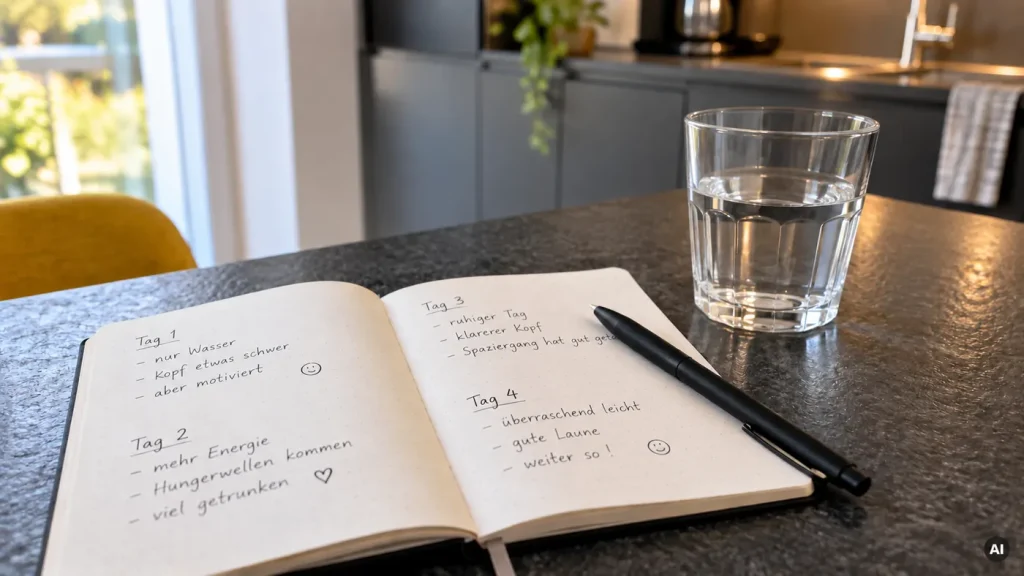 Tag 1
- nur Wasser
- Kopf etwas schwer
- aber motiviert
Tag 2
- mehr Energie
- Hungerwellen kommen
- viel getrunken
Tag 3
- ruhiger Tag
- klarerer Kopf
- Spaziergang hat gut
Tag 4
- überraschend leicht
- gute Laune
- weiter so !
AI